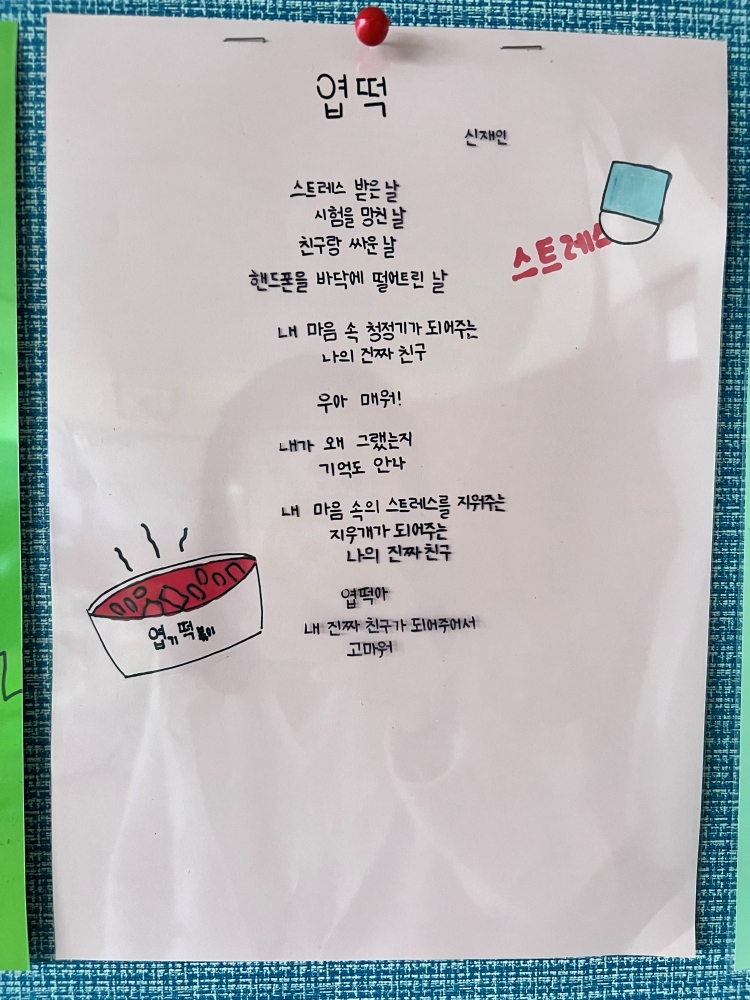 엽떡
신재인
스트레스 받은 날
시험을 망친 날
친구랑 싸운 날
핸드폰을 바닥에 떨어트린 날
스트레스
내 마음 속 청정기가 되어주는
나의 진짜 친구
우아 매워!
내가 왜 그랬는지
기억도 안나
내 마음 속의 스트레스를 지워주는
지우개가 되어주는
나의 진짜 친구
엽떡아
내 진짜 친구가 되어주어서
고마워
엽기떡볶이